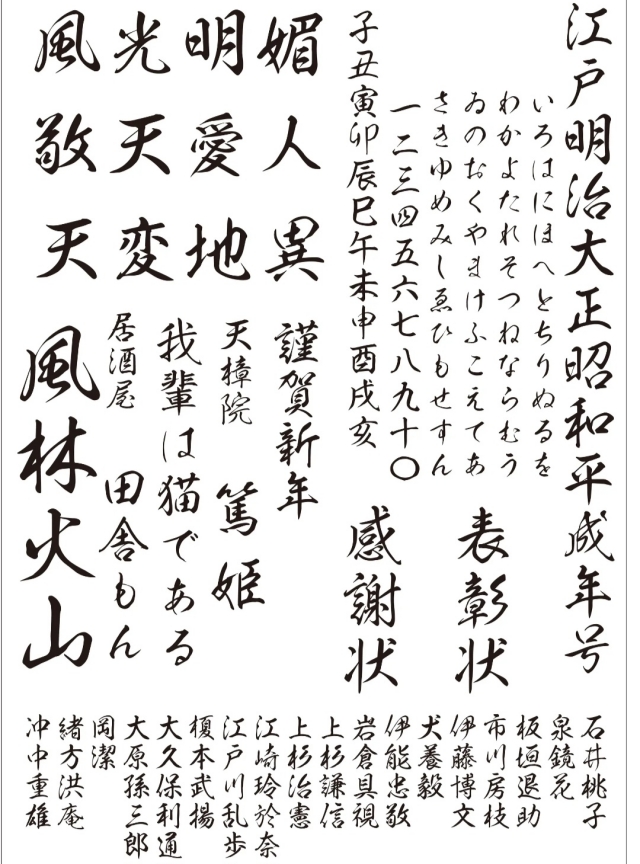 江戸明治大正昭和平成年号
いろはにほへとちりぬるを
わかよたれそつねならむう
ゐのおくやまけふこえてあ
さきゆめみしゑひもせすん
一二三四五六七八九十〇
子丑寅卯辰巳午未申酉戌亥
表彰状
感謝状
媚人異
明愛地
光天変
風敬天
謹賀新年
天樟院 篤姫
我輩は猫である
居酒屋 田舎もん
風林火山
石井桃子
泉鏡花
板垣退助
市川房枝
伊藤博文
犬養毅
伊能忠敬
岩倉具視
上杉謙信
上杉治憲
江崎玲於奈
江戸川乱歩
榎本武揚
大久保利通
大原孫三郎
岡潔
緒方洪庵
沖中重雄